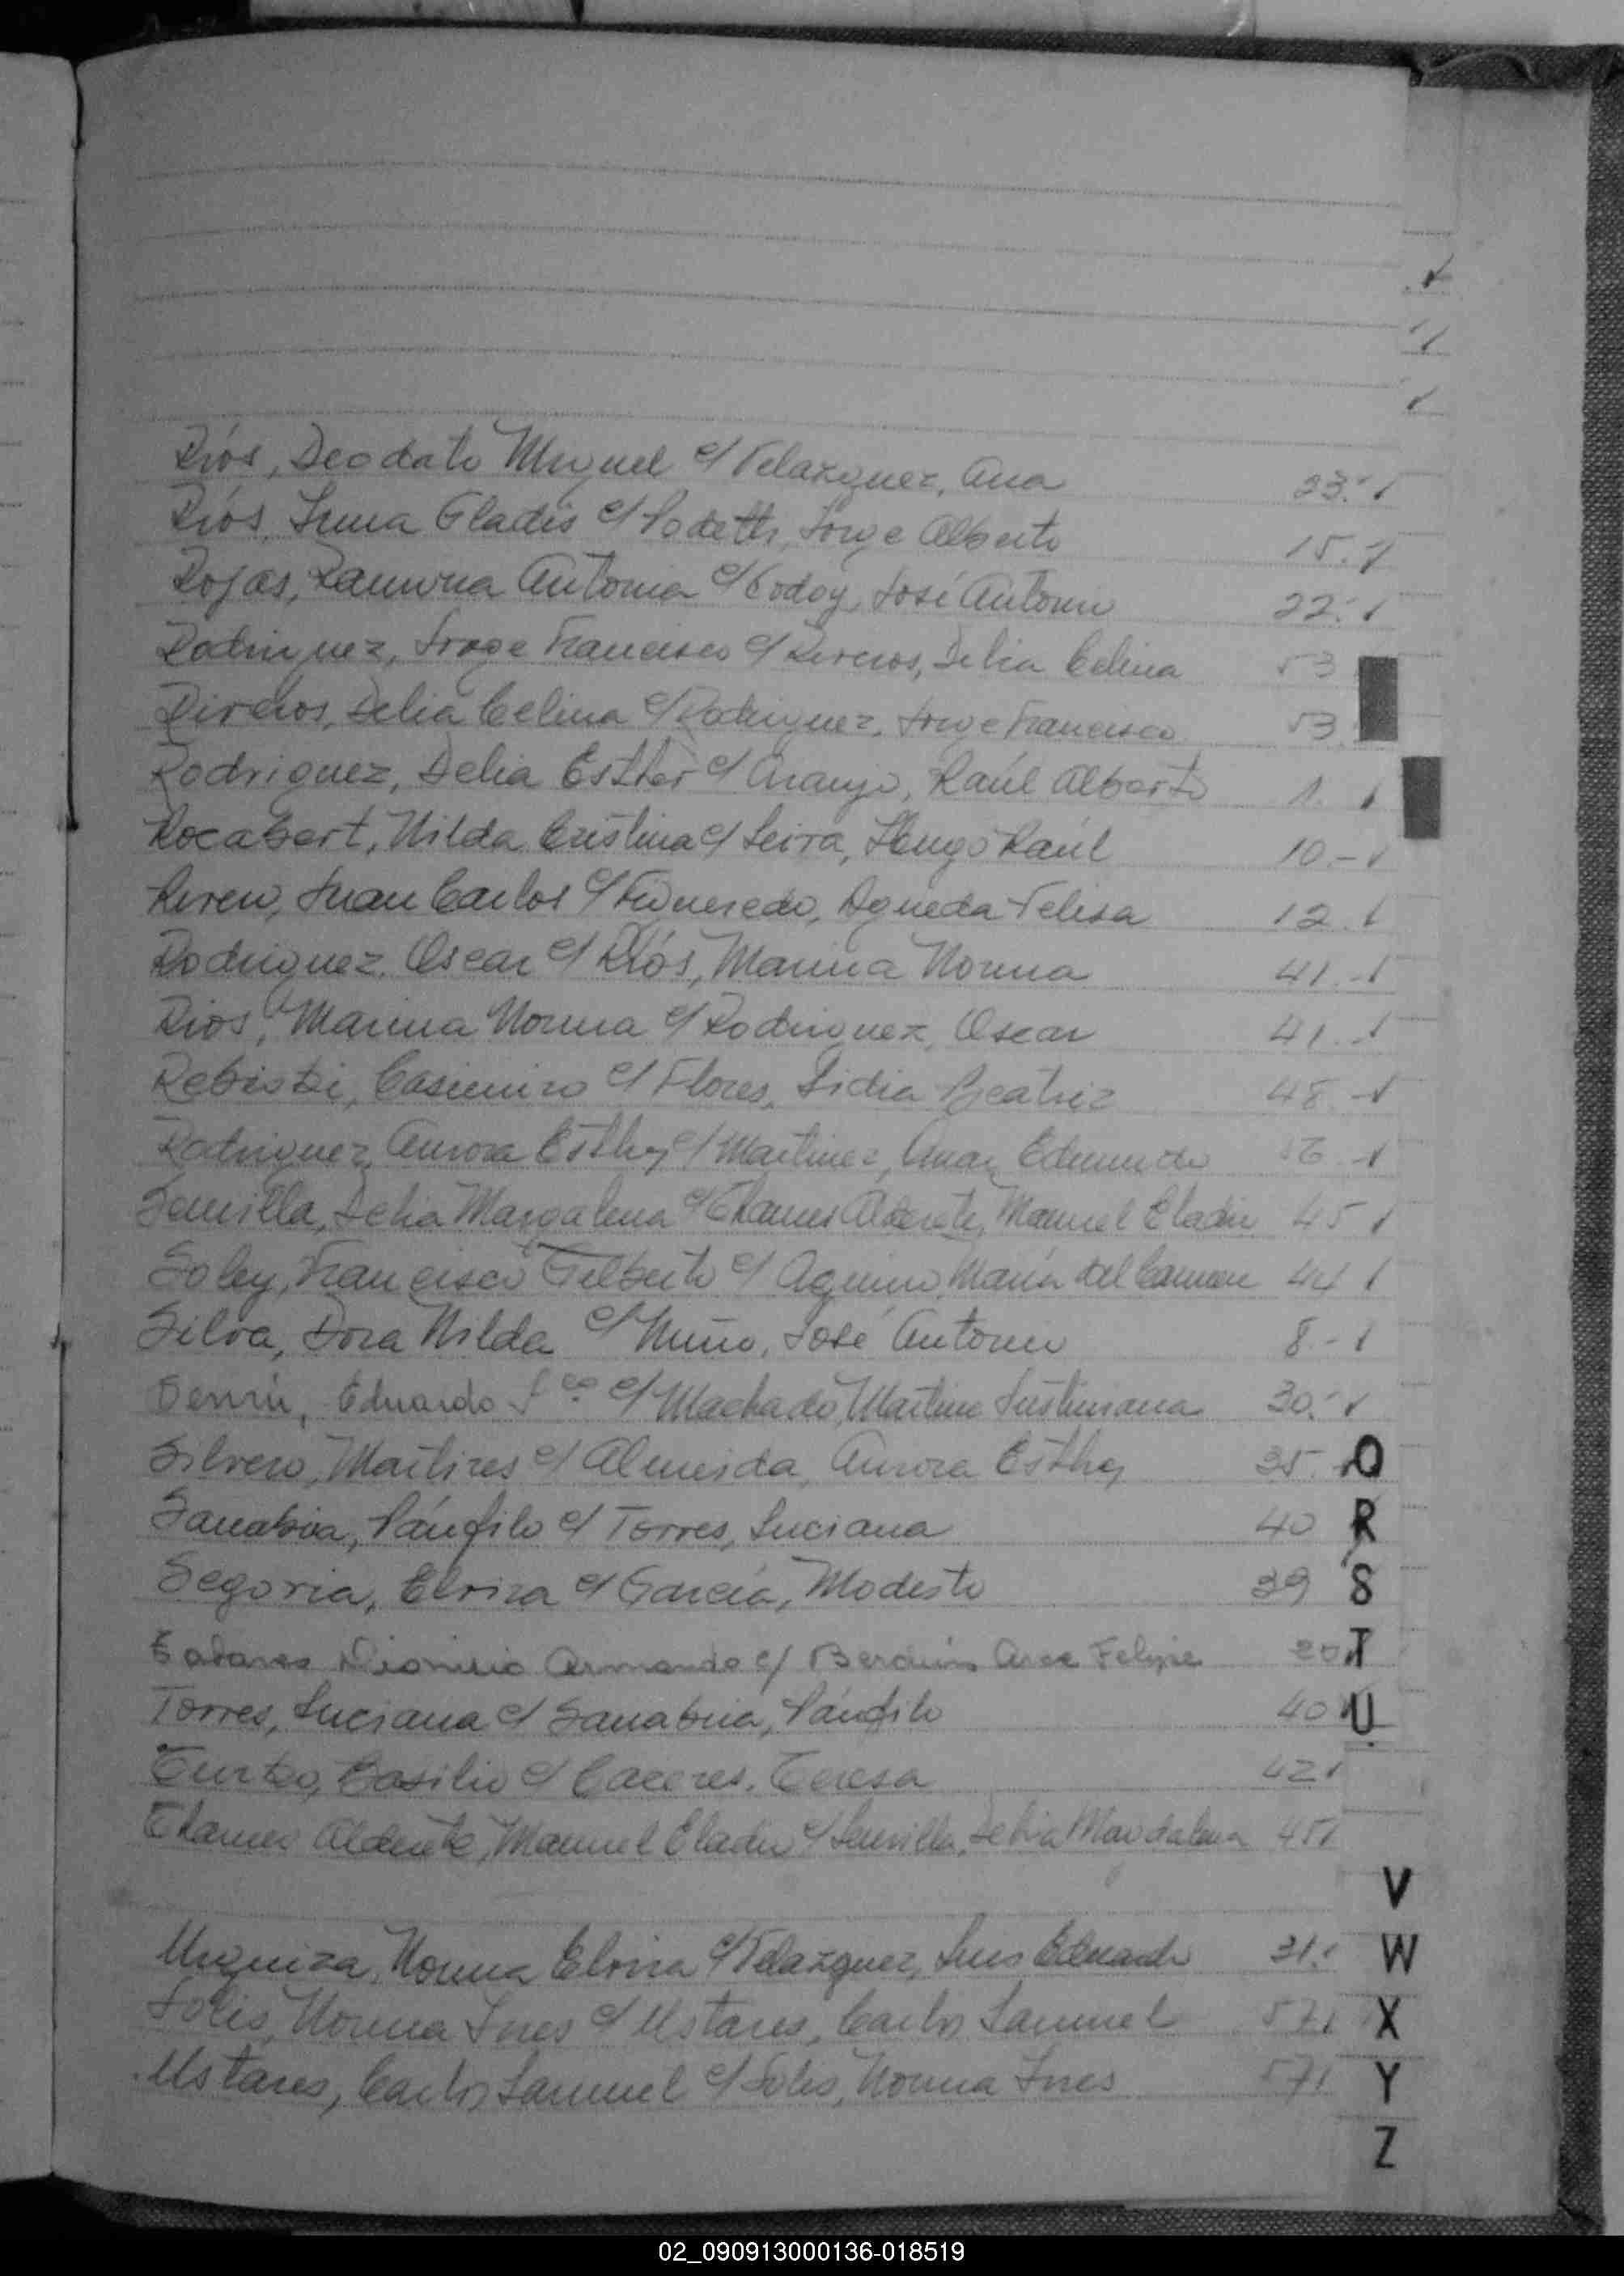 Ríos, Deodato Miguel c/ Velazquez, Ana 23.
Ríos, Irma Gladis c/ Jorge Alberto 15.
Rojas, Ramona Antonia c/ Godoy, José Antonio 22.
Rodriguez, Jorge Francisco c/ Delia Celina 53
Delia Celina c/ Rodriguez, Jorge Francisco 53.
Rodriguez, Delia Esther c/ Araujo, Raúl Alberto 1.
Rocabert, Nilda Cristina c/ Leiva, Hugo Raúl 10.-
Juan Carlos c/ Figueredo, Agueda Felisa 12.
Rodriguez, Oscar c/ Ríos, Marina Norma 41.-
Rios, Marina Norma c/ Rodriguez, Oscar 41.-
Casimiro c/ Flores, Lidia Beatriz 48.-
Rodriguez, Aurora Esther c/ Martinez, Edmundo 56.-
Delia Margalena c/ Alderete, Manuel Eladio 45
Soley, Francisco Filberto c/ Aquino, María del Carmen 44
Silva, Dora Nilda c/ Niño, José Antonio 8.-
Eduardo c/ Machado, Martina Justiniana 30.-
Silvero, Martires c/ Almeida, Aurora Esther 35. O
Sanabria, Pánfilo c/ Torres, Luciana 40 R
Segovia, Elvira c/ García, Modesto 39 S
Dionicio Armando c/ Felipe 20 T
Torres, Luciana c/ Sanabria, Pánfilo 40 U
Basilio c/ Caceres, Teresa 42
Alderete, Manuel Eladio c/ Delia Magdalena 45
V
Urquiza, Norma Elvira c/ Velazquez, Luis Eduardo 31. W
Solis, Norma Ines c/ Ustares, Carlos Samuel 57 X
Ustares, Carlos Samuel c/ Solis, Norma Ines 57 Y
Z
02_090913000136-018519